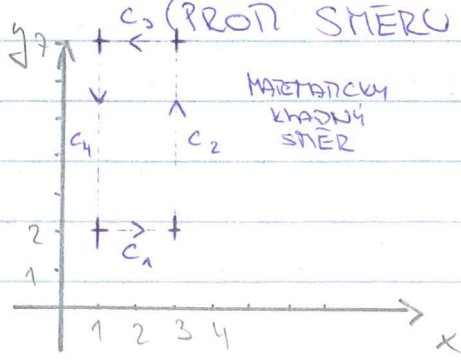 C3 (PROTI SMĚRU
y 7
MATEMATICKY
KLADNÝ
SMĚR
C4
C2
2
C1
1
1 2 3 4
x